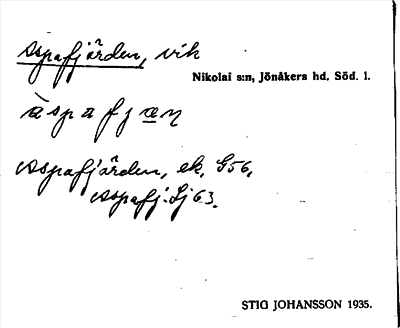 Aspafjärden, vik
Nikolai s:n, Jönåkers hd, Söd. l.
àspafjæ̱ṇ
Aspafjärden, ek, G56,
Aspafj. Lj 63.
STIG JOHANSSON 1935.